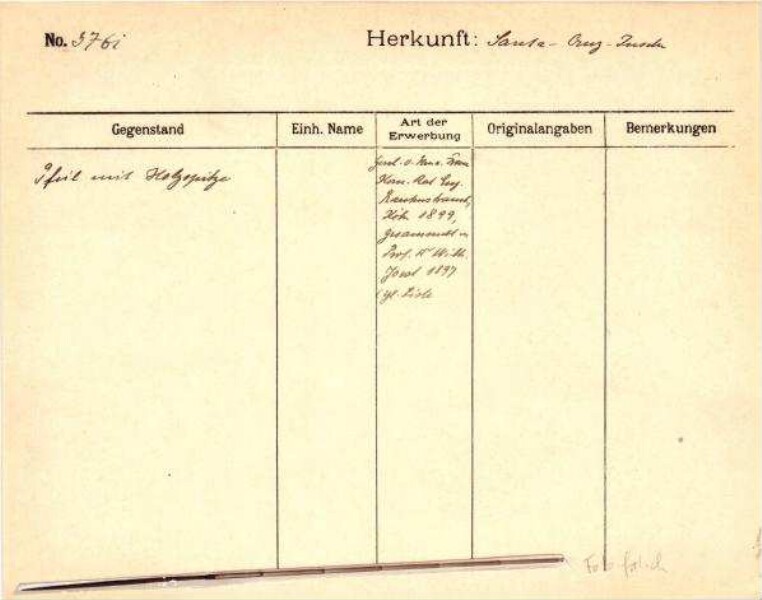 No. 376i
Herkunft: Santa-Cruz-Inseln
Gegenstand
Einh. Name
Art der
Erwerbung
Originalangaben
Bemerkungen
Pfeil mit Holzspitze
Gesch. v. Frau
Kom. Rat Eug.
Rautenstrauch,
Köln 1899,
gesammelt v.
Prof. Dr Wilh.
Joest 1897
Liste
Foto falsch